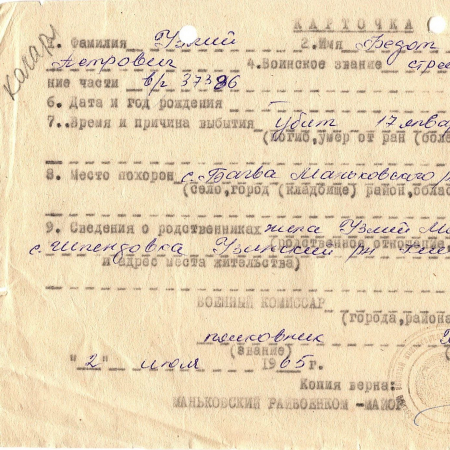 КАРТОЧКА
Комарь
1. Фамилия Гузлий 2. Имя Федот
Петрович 4. Воинское звание стре
ние части в/ч 37386
6. Дата и год рождения
7. Время и причина выбытия Убит 17 январ
(погиб, умер от ран (обла
8. Место похорон с. Багва Маньковского р
(село, город (кладбище) район, облас
9. Сведения о родственниках жена Гузлий М
(родственное отношение
с. Шпендовка Узинский рн Кие
и адрес места жительства)
ВОЕННЫЙ КОМИССАР
(города, района
полковник
(звание)
"2" июля 1965г.
Копия верна:
МАНЬКОВСКИЙ РАЙВОЕНКОМ -МАЙОР